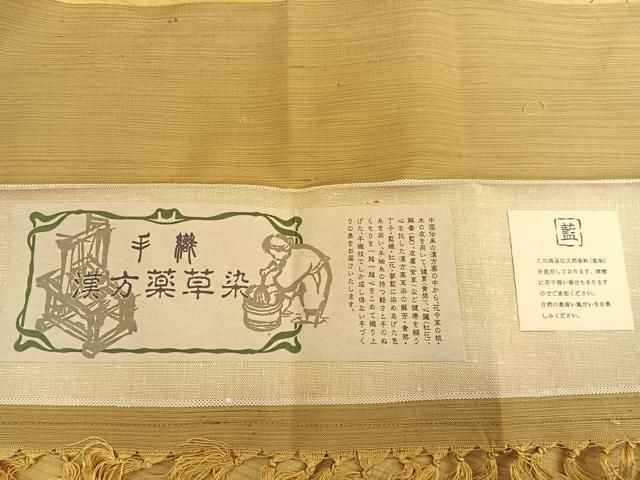 手織
漢方薬草染
中国伝来の漢方薬の中から、花や草の根・
木の皮を用いて、健胃(黄蘗)、心臓(紅花)、
解毒(藍)、皮膚(紫草)など健康を願う
心を託した漢方薬草染の蘇芳・黄蘗・
丁子・藍蝋・紅花・蓼藍で染めあげた色
糸を用い、手紬糸の持つ軽さと手のぬ
くもりを一越一越心をこめて織り上
げた、手織技でしか成し得ない手づく
りの美をお届けいたします。
藍
この商品は天然染料(藍染)
を使用しております。摩擦
に若干弱い場合もあります
のでご承知ください。
自然の素描い風合いをお楽
しみください。